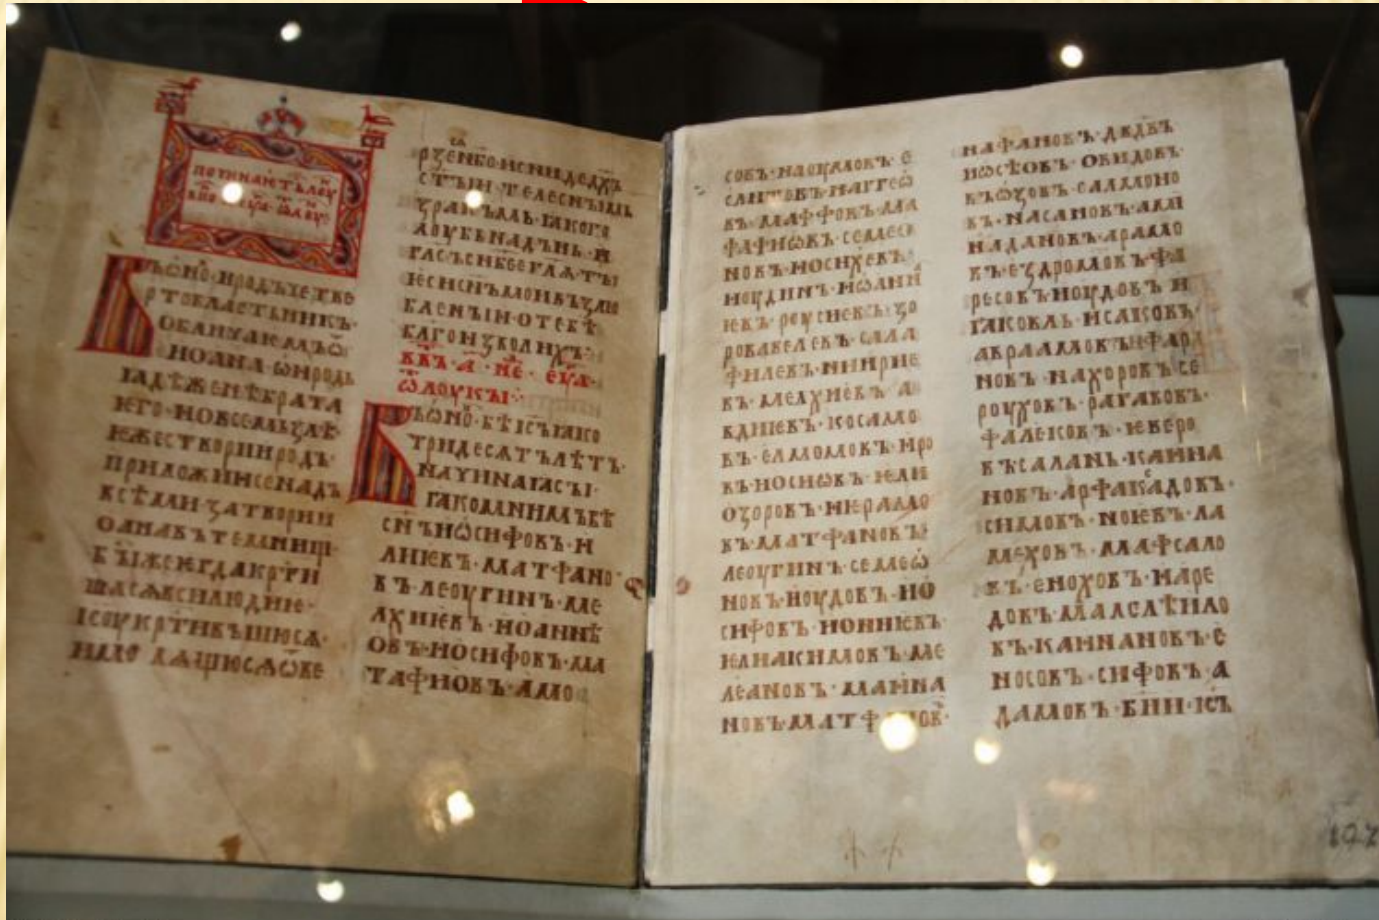 почина­ѭтъ лоу
въоно · иродъ четве
ртовластьникъ ·
обличаѥмъ ѿ
иоана ѡ ирод
ꙗдѣ женѣ брата
ѥго · и о всемь зълѣ
ѥже створи иродъ ·
приложи и се надъ
всѣми · затвори и
оана въ темници
бꙑ же ѥгда крьти
шасѧ вси людиѥ ·
ісоу крьтивъшюсѧ ·
и мо лѧщюсѧ ѿве
рзе нбо · и сниде дхъ
стꙑи · телесныимь
зракъмь · ꙗко го
лоубь на нь · и
гла съ нбсе глѧ · тꙑ
ѥси снъ мои възлю
блены и · о тебѣ
благоизволихъ ·
ѿ лоукꙑ ·
въоно · бѣ іс ꙗко
тридесѧтъ лѣтъ ·
начинаꙗсꙑ ·
ꙗко мьнимъ бѣ
снъ иѡсифовъ · и
лиѥвъ · матфано
въ · леоугиинъ · ме
лхиѥвъ · иоаннѣ
овъ · иосифовъ · ма
тафиовъ · амо
совъ · наоумовъ · е
слитовъ · наггеѡ
въ · маффовъ · ма
тафиѡвъ · семеи
новъ · иосихевъ ·
июдинъ · иѡанн
ѥвъ · рисиѥвъ · зо
ровавелевъ · сала
филевъ · нириѥ
въ · мелхиѥвъ · а
вдиѥвъ · косамо
въ · елмомовъ · иро
въ · иосиѡвъ · ѥли
озоровъ · иерамо
въ · матфановъ ·
леоугиинъ · семеѡ
новъ · июдовъ · ио
сифовъ · ионниѥвъ
ѥлиакимовъ · ме
леановъ · маина
новъ · матфановъ
нафановъ · двдвъ
иѡсѣовъ · овидовъ ·
въѡзовъ · салмоно
въ · насановъ · ами
надановъ · арамо
въ · ездромовъ · фа
ресовъ · июдовъ · и
ꙗковль · исаковъ ·
авраамовъ · фара
новъ · нахоровъ · се
роуховъ · рагавовъ ·
фалековъ · ѥверо
въ · саламь · каина
новъ · арфаксадовъ ·
симовъ · ноѥвъ · ла
меховъ · мафсало
въ · еноховъ · иаре
довъ · малелѣило
въ · каинановъ · е
носовъ · сифовъ · а
дамовъ · бжии · іс